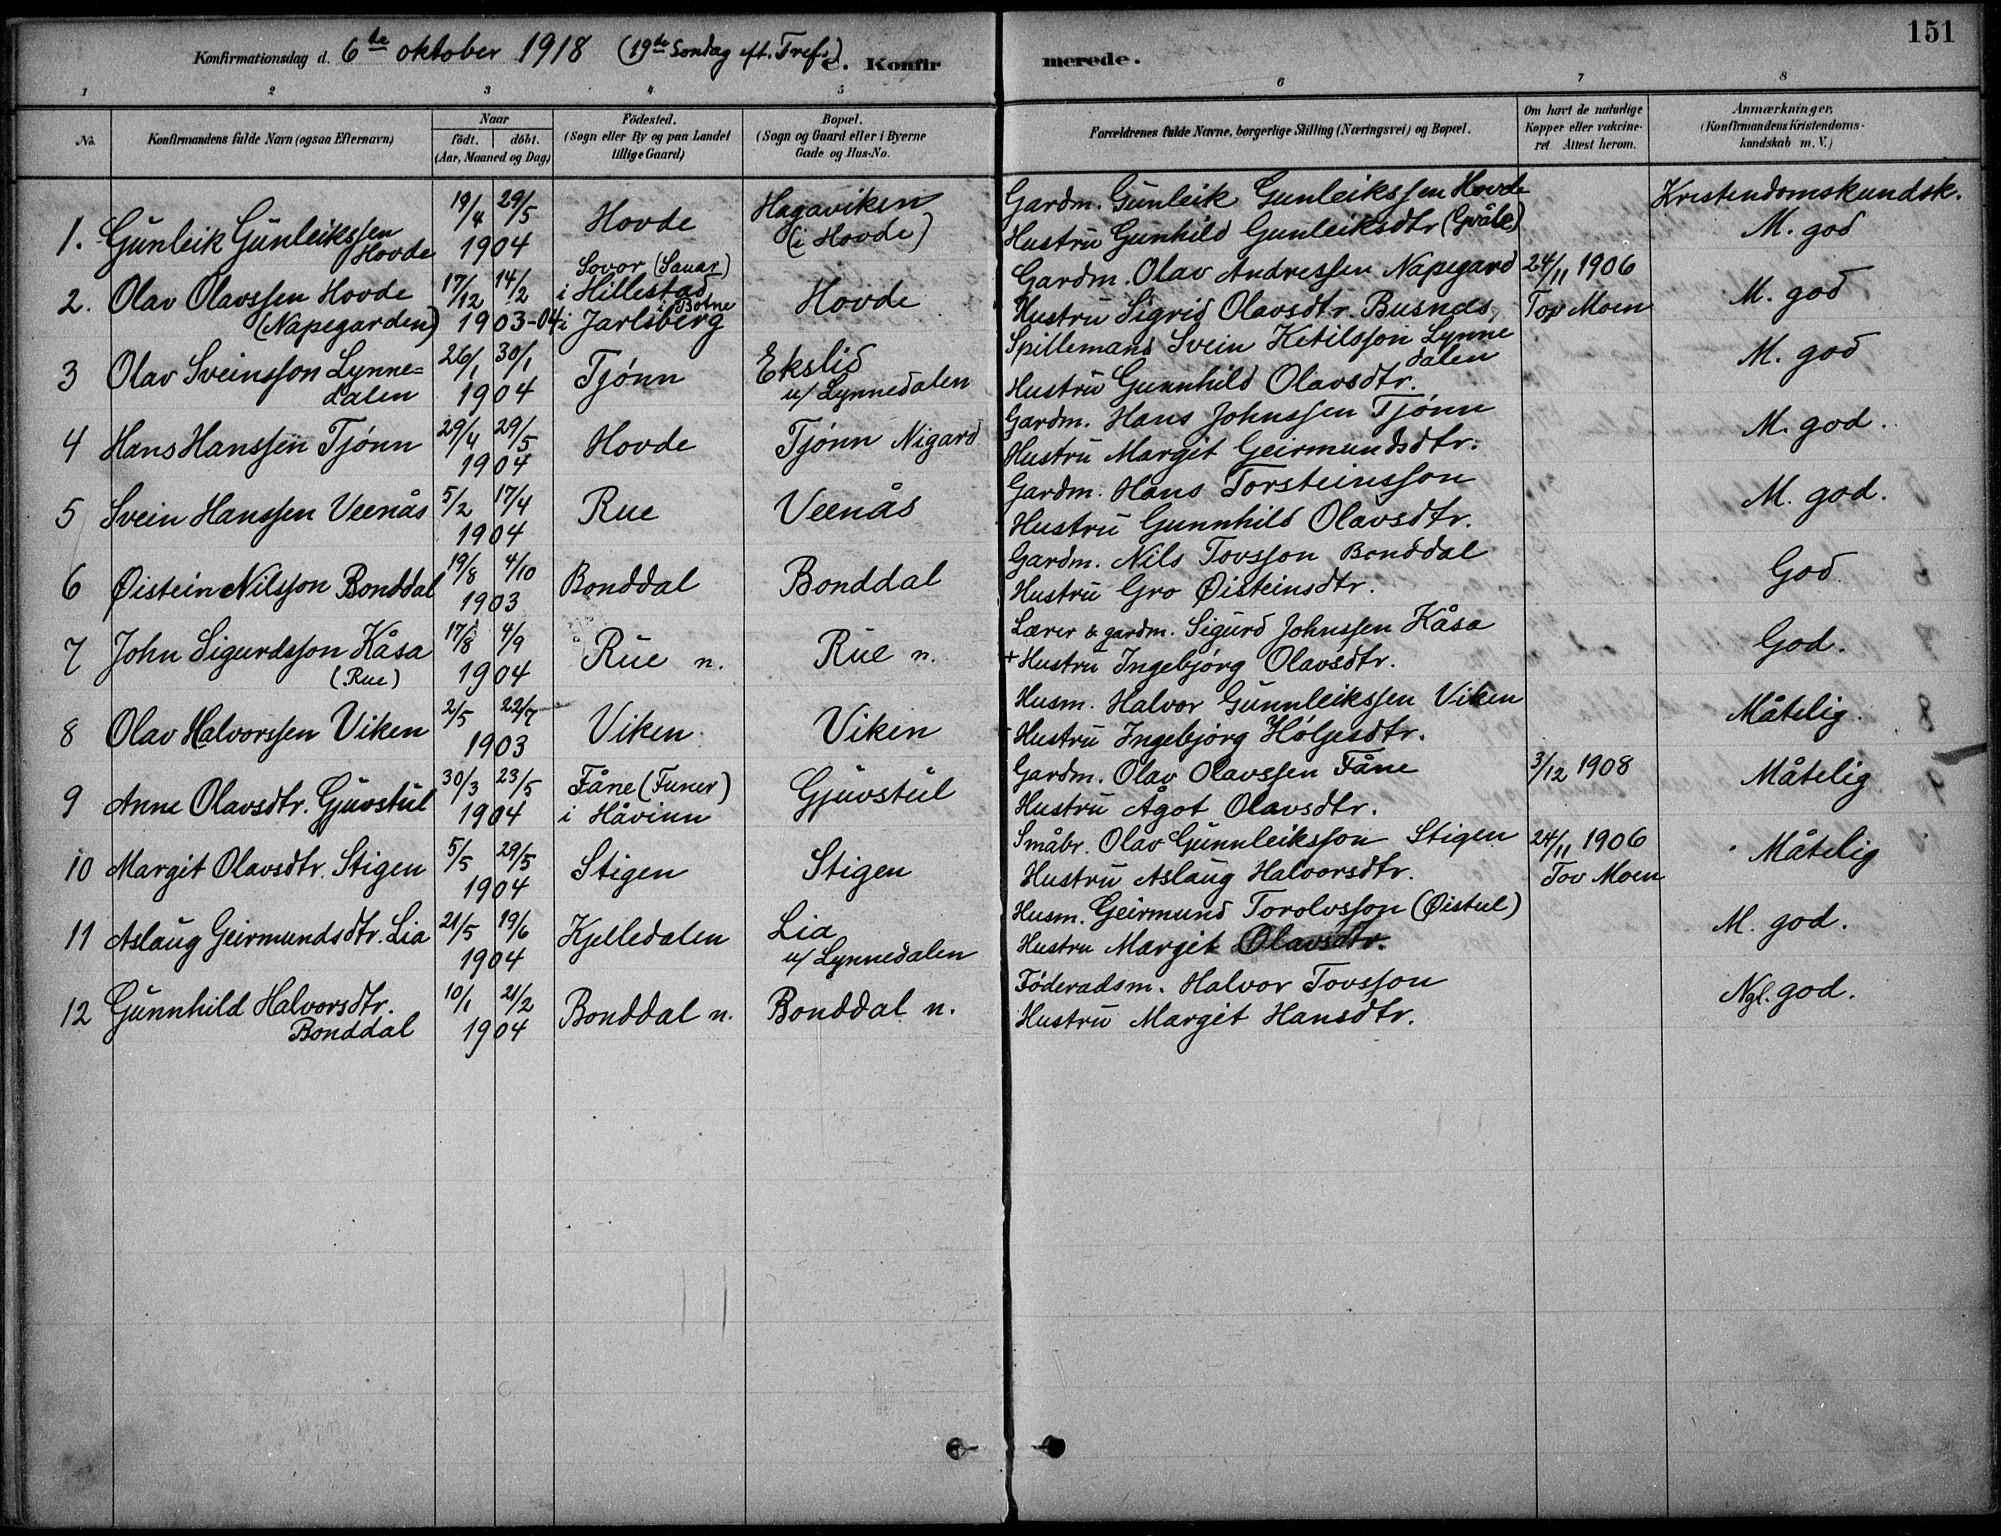 151
Konfirmationsdag d. 6te oktober 1918 (19de Søndag eft. Tref.) C. Konfirmerede.
1 2 3 4 5 6 7 8
No. Konfirmandens fulde Navn (ogsaa Efternavn) Naar født. døbt. (Aar, Maaned og Dag) Fødested. (Sogn eller By og paa Landet tillige Gaard) Bopæl. (Sogn og Gaard eller i Byerne Gade og Hus-No. Forældrenes fulde Navne, borgerlige Stilling (Næringsvei) og Bopæl. Om havt de naturlige Kopper eller vakcineret Attest herom. Anmærkninger, (Konfirmandens Kristendomskundskab m. V.)
Kristendomskundsk.
1. Gunleik Gunleikssen 19/4 29/5 Hovde Hagaviken Gardm. Gunleik Gunleikssen Hovde M. god
Hovde 1904 (i Hovde) Hustru Gunhild Gunleiksdtr (Gvåle)
2. Olav Olavssen Hovde 17/12 14/2 Sovor (Sauar) i Hillestad i Botne Hovde Gardm. Olav Andressen Napegard 24/11 1906 M. god
(Napegarden) 1903-04 i Jarlsberg Hustru Sigrid Olavsdtr. Busnes Tov Moen
3 Olav Sveinsson Lynne= 26/1 30/1 Tjønn Ekslid Spillemand Svein Ketilsson Lynne M. god
dalen 1904 u/ Lynnedalen dalen Hustru Gunnhild Olavsdtr.
4 Hans Hanssen Tjønn 29/4 29/5 Hovde Tjønn Nigard Gardm. Hans Johnssen Tjønn M. god.
1904 Hustru Margit Geirmundsdtr.
5 Svein Hanssen Veenås 5/2 17/4 Rue Veenås Gardm. Hans Torsteinsson M. god.
1904 Hustru Gunnhild Olavsdtr.
6 Øistein Nilsson Bonddal 19/8 4/10 Bonddal Bonddal Gardm. Nils Tovsson Bonddal God
1903 Hustru Gro Øisteinsdtr.
7 John Sigurdsson Kåsa 17/8 4/9 Rue n. Rue n. Lærer & gardm. Sigurd Johnssen Kåsa God.
(Rue) 1904 + Hustru Ingebjørg Olavsdtr.
8 Olav Halvorssen Viken 2/5 22/7 Viken Viken Husm. Halvor Gunnleikssen Viken Måtelig.
1903 Hustru Ingebjørg Høljesdtr.
9 Anne Olavsdtr. Gjuvstul 30/3 23/5 Fåne (Funer) Gjuvstul Gardm. Olav Olavssen Fåne 3/12 1908 Måtelig
1904 i Håvinn Hustru Ågot Olavsdtr.
10 Margit Olavsdtr. Stigen 5/5 29/5 Stigen Stigen Småbr. Olav Gunnleiksson Stigen 24/11 1906 Måtelig
1904 Hustru Aslaug Halvorsdtr. Tov Moen
11 Aslaug Geirmundsdtr. Lia 21/5 19/6 Kjelledalen Lia Husm. Geirmund Torolvsson (Øistul) M. god.
1904 u/ Lynnedalen Hustru Margit Olavsdtr.
12 Gunnhild Halvorsdtr. 10/1 21/2 Bonddal n. Bonddal n. Føderadsm. Halvor Tovsson Ngl. god.
Bonddal 1904 Hustru Margit Hansdtr.